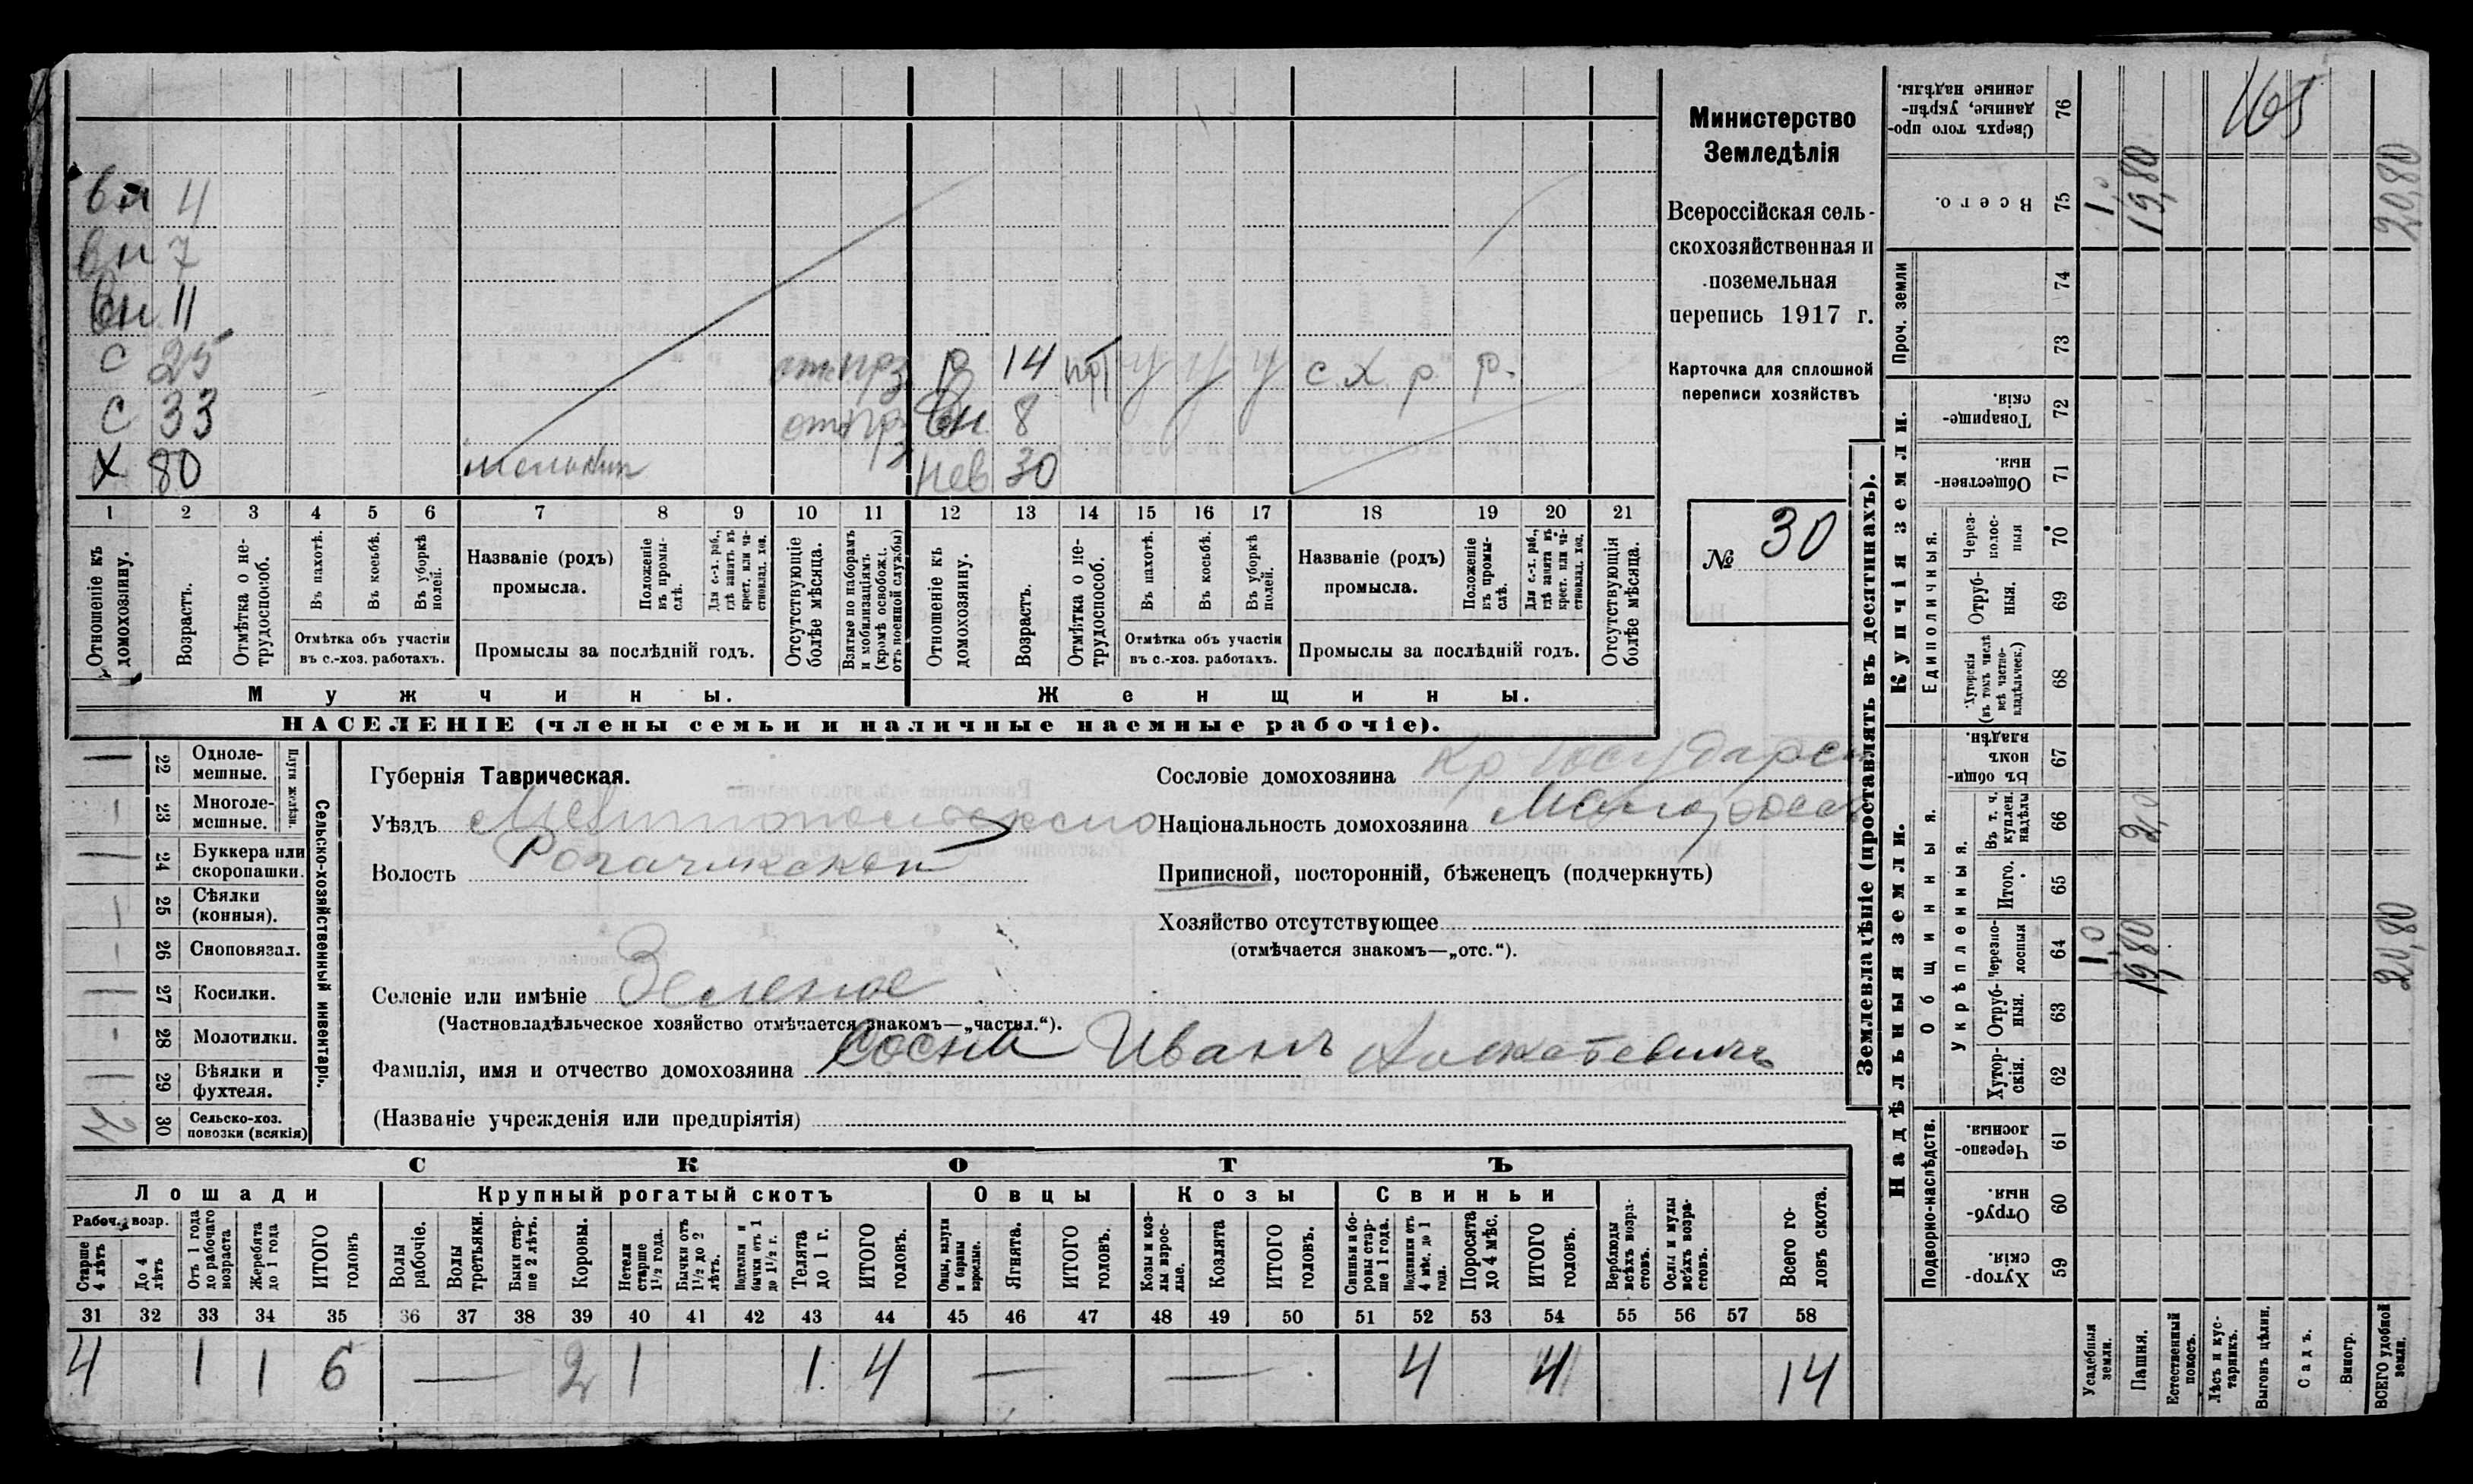 вн 4
вн 7
вн 11
с 25 отс прз р 14 у у у с.х.р. р.
с 33 отс прз вн 8
х 80 нев 30
1 2 3 4 5 6 7 8 9 10 11 12 13 14 15 16 17 18 19 20 21
Отношеніе къ домохозяину.
Возрастъ.
Отмѣтка о не-трудоспособ.
Въ пахотѣ.
Въ косьбѣ.
Въ уборкѣ полей.
Отмѣтка объ участіи
въ с.-хоз. работахъ.
Названіе (родъ)
промысла.
Положеніе въ промы-слѣ.
Для с.-х. раб., гдѣ занятъ въ крест. или ча-стновлад. хоз.
Промыслы за послѣдній годъ.
Отсутствующіе болѣе мѣсяца.
Взятые по наборамъ и мобилизаціямъ (кромѣ освобожд. отъ военной службы)
Отношеніе къ домохозяину.
Возрастъ.
Отмѣтка о не-трудоспособ.
Въ пахотѣ.
Въ косьбѣ.
Въ уборкѣ полей.
Отмѣтка объ участіи
въ с.-хоз. работахъ.
Названіе (родъ)
промысла.
Положеніе въ промы-слѣ.
Для с.-х. раб., гдѣ занята въ крест. или ча-стновлад. хоз.
Промыслы за послѣдній годъ.
Отсутствующія болѣе мѣсяца.
Мужчины. Женщины.
НАСЕЛЕНІЕ (члены семьи и наличные наемные рабочіе).
Министерство
Земледѣлія
Всероссійская сель-
скохозяйственная и
поземельная
перепись 1917 г.
Карточка для сплошной
переписи хозяйствъ
№ 30
Сельско-хозяйственный инвентарь.
Плуги желѣзн.
22 Одноле-мешные.
23 Многоле-мешные.
24 Буккера или скоропашки.
25 Сѣялки (конныя).
26 Сноповязал.
27 Косилки.
28 Молотилки.
29 Вѣялки и фухтеля.
30 Сельско-хоз. повозки (всякія) 2
Губернія Таврическая.
Уѣздъ Мелитопольскаго
Волость Рогачикской
Селеніе или имѣніе Зеленое
(Частновладѣльческое хозяйство отмѣчается знакомъ—„частвл.“).
Фамилія, имя и отчество домохозяина Иванъ
(Названіе учрежденія или предпріятія)
Сословіе домохозяина Кр Государс
Національность домохозяина Малоросс
Приписной, посторонній, бѣженецъ (подчеркнуть)
Хозяйство отсутствующее
(отмѣчается знакомъ—„отс.“).
СКОТЪ
Лошади Крупный рогатый скотъ Овцы Козы Свиньи
Рабоч. возр.
Старше 4 лѣтъ
До 4 лѣтъ
Отъ 1 года до рабочаго возраста
Жеребята до 1 года
ИТОГО головъ
Волы рабочіе.
Волы третьяки.
Быки стар-ше 2 лѣтъ.
Коровы.
Нетели старше 1½ года.
Бычки отъ 1½ до 2 лѣтъ.
Подтелки и бычки отъ 1 до 1½ г.
Телята до 1 г.
ИТОГО головъ.
Овцы, валухи и бараны взрослые.
Ягнята.
ИТОГО головъ.
Козы и коз-лы взрос-лые.
Козлята
ИТОГО головъ.
Свиньи и бо-ровы стар-ше 1 года.
Подсвинки отъ 4 мѣс. до 1 года.
Поросята до 4 мѣс.
ИТОГО головъ.
Верблюды всѣхъ возра-стовъ.
Ослы и мулы всѣхъ возра-стовъ.
Всего го-ловъ скота.
31 32 33 34 35 36 37 38 39 40 41 42 43 44 45 46 47 48 49 50 51 52 53 54 55 56 57 58
4 1 1 6 — 2 1 1 4 — — 4 4 14
Землевладѣніе (проставлять въ десятинахъ).
Купчія земли.
Надѣльныя земли.
Сверхъ того про-данные, укрѣп-ленные надѣлы. 76
Всего. 75 1,0 19,80 20,80
Проч. земли 74 73
Товарище-скія. 72
Обществен-ныя. 71
Единоличныя.
Через-полос-ныя 70
Отруб-ныя. 69
Хуторскія (въ томъ числѣ всѣ частно-владѣльческ.) 68
Общинныя.
Въ общин-номъ владѣн. 67
Укрѣпленныя.
Въ т. ч. куплен. надѣлы 66 2,0
Итого. 65
Черезпо-лосныя 64 1,0 19,80 20,80
Отруб-ныя. 63
Хутор-скія. 62
Подворно-наслѣдств.
Черезпо-лосныя. 61
Отруб-ныя. 60
Хутор-скія. 59
Усадебныя земли.
Пашня.
Естественный покосъ.
Лѣсъ и кус-тарникъ.
Выгонъ цѣлин.
Садъ.
Виногр.
ВСЕГО удобной земли.